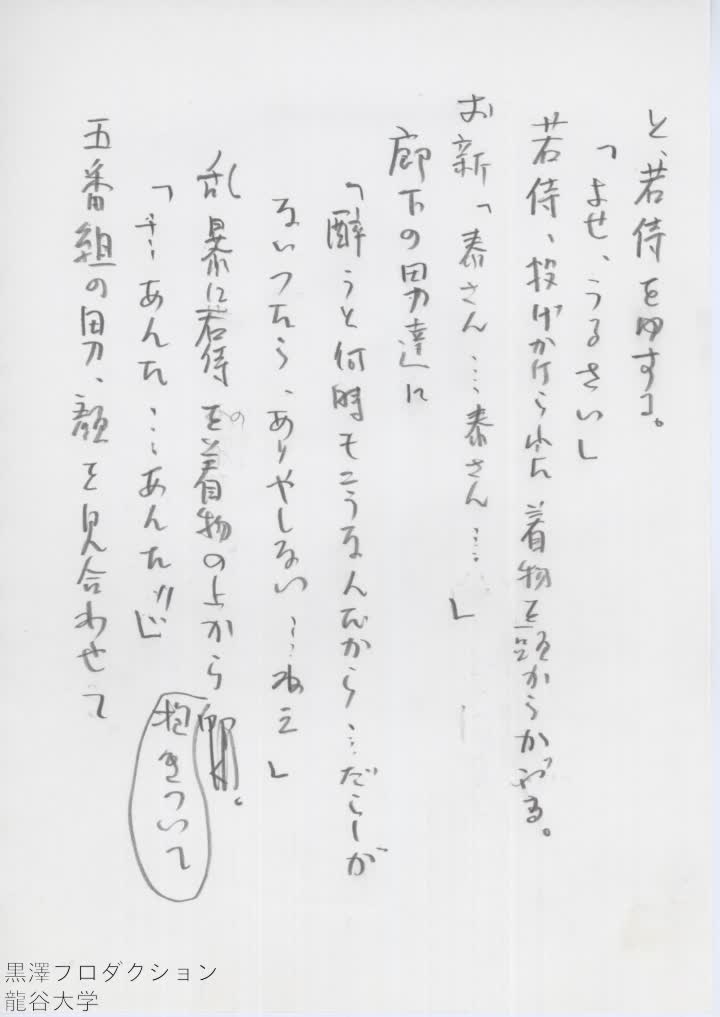 と、若侍をゆする。
「よせ、うるさい」
若侍、投げかけられた着物を頭からかぶる。
お新「泰さん…泰さん…」
廊下の男達に
「酔うと何時もこうなんだから…だらしが
ないったら、ありやしない…ねえ」
乱暴に若侍の着物の上から
抱きついて
「…あんた…あんた!!」
五番組の男、顔を見合わせて
黒澤プロダクション
龍谷大学